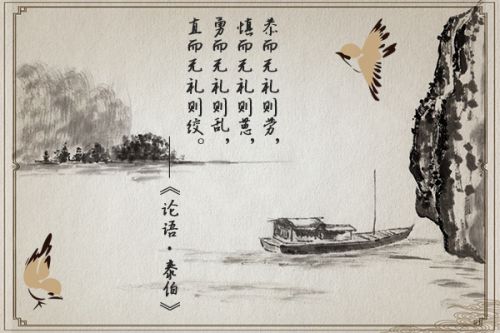 恭而无礼则劳，
慎而无礼则葸，
勇而无礼则乱，
直而无礼则绞。
《论语·泰伯》